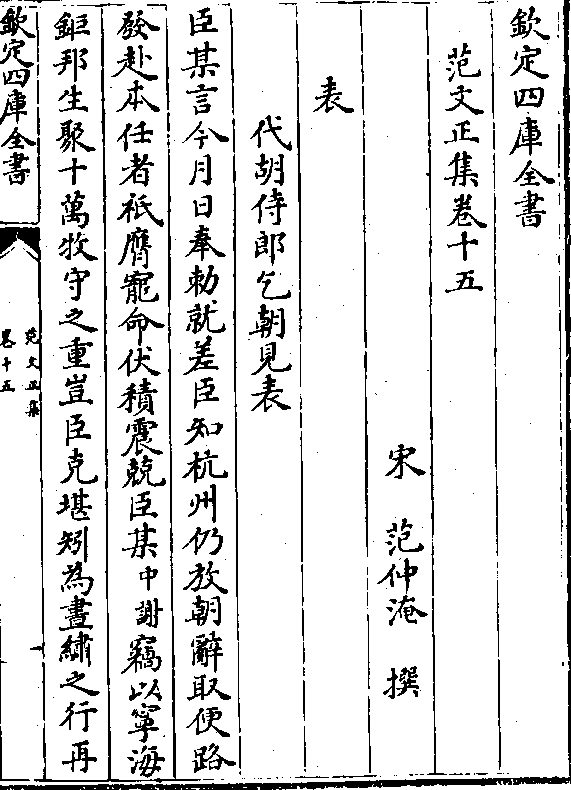 欽定四庫全書
范文正集卷十五
宋 范仲淹 撰
表
代胡侍郎乞朝見表
臣某言今月日奉勅就差臣知杭州仍放朝辭取便路
發赴本任者祗膺寵命伏積震兢臣某中謝竊以寧海
鉅邦生聚十萬牧守之重豈臣克堪矧為晝繡之行再
欽定四庫全書
范文正集
卷十五
一